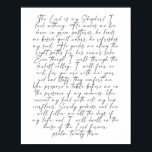 The Lord is my Shepherd, I
lack nothing. He makes me lie
down in green pastures, he leads
me beside quiet waters, he refreshes
my soul. He guides me along the
right paths for his name's sake.
Even though I walk through the
darkest valley, I will fear no
evil, for you are with me; your
rod and staff, they comfort me.
You prepare a table before me in
the presence of my enemies. You
anoint my head with oil; my cup
overflows. Surely goodness and love
will follow me all the days of
my life, and I will dwell in the
house of the Lord forever.
psalm twenty three